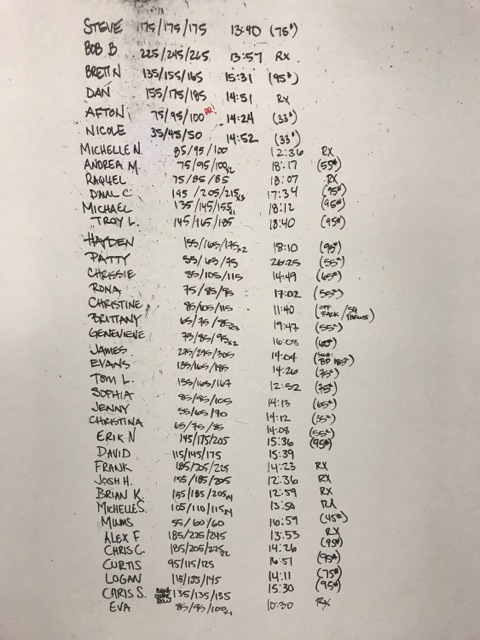 STEVE 175/175/175 13:40 (75#)
BOB B 225/245/265 13:57 RX
BRETT N 135/155/165 15:31 (95#)
DAN 155/175/185 14:51 RX
AFTON 75/95/100 PR! 14:24 (33#)
NICOLE 35/45/50 14:52 (33#)
MICHELLE N. 85/95/100 12:36 RX
ANDREA M. 75/95/100x2 18:17 (55#)
RAQUEL 75/85/85 18:07 RX
PAUL C 195/205/215x3 17:34 (95#)
MICHAEL 135/145/155x1 18:12 (95#)
TROY L. 145/165/185 18:40 (95#)
HAYDEN 155/165/175x2 18:10 (95#)
PATTY 55/65/75 26:25 (55#)
CHRISSIE 95/105/115 14:49 (65#)
RONA 75/85/95 17:02 (55#)
CHRISTINE 95/105/115 11:40
BRITTANY 65/75/85x3 19:47 (55#)
GENEVIEVE 75/85/95x2 16:08 (60#)
JAMES 275/295/305 14:04
EVANS 135/165/185 14:26 (75#)
TOM L. 155/165/167 12:52 (75#)
SOPHIA 85/95/105 14:13 (65#)
JENNY 55/65/70 14:12 (35#)
CHRISTINA 65/75/85 14:08 (55#)
ERIK N 145/175/205 15:36 (95#)
DAVID 115/145/175 15:39
FRANK 185/205/225 14:23 RX
JOSH H. 155/185/205 12:36 RX
BRIAN K. 155/185/205x4 12:59 RX
MICHELLE S. 105/110/115x4 13:50 RX
MUMS 55/60/60 16:59 (45#)
ALEX F 185/225/245 13:53 RX
CHRIS C. 185/205/275x2 14:26 (95#)
CURTIS 95/115/125 16:51 (95#)
LOGAN 115/135/145 14:11 (75#)
CHRIS S. 135/135/135 15:30 (95#)
EVA 85/95/100x1 10:30 RX